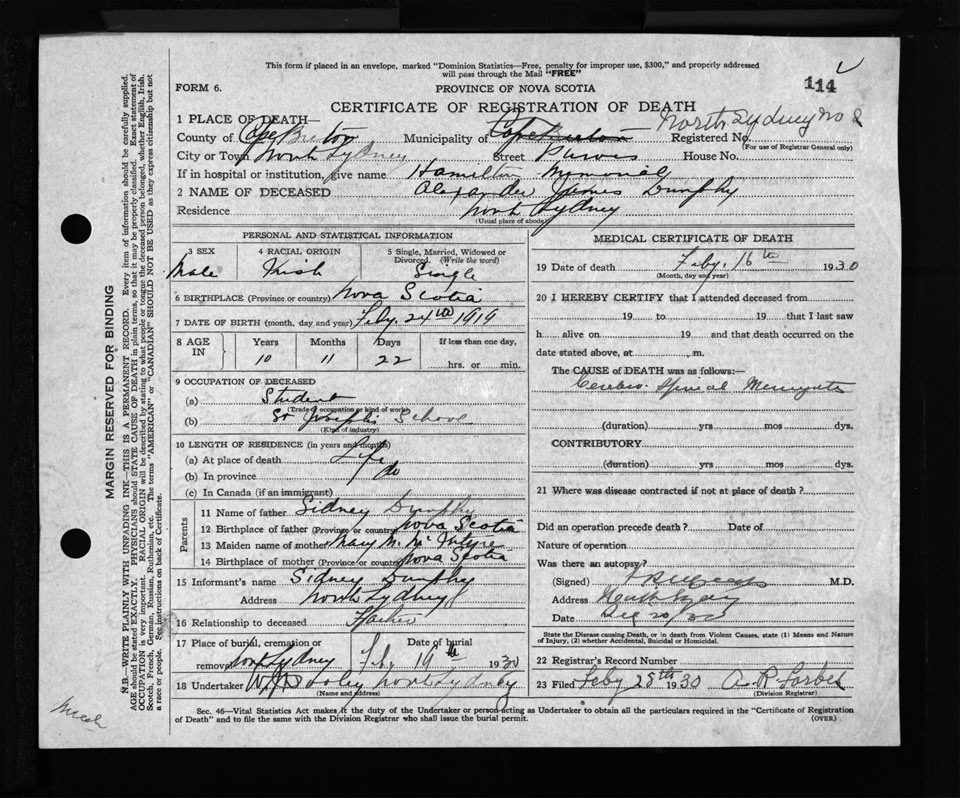 This form if placed in an envelope, marked "Dominion Statistics—Free, penalty for improper use, $300," and properly addressed
will pass through the Mail "FREE"
114
FORM 6.
PROVINCE OF NOVA SCOTIA
CERTIFICATE OF REGISTRATION OF DEATH
1 PLACE OF DEATH—
North Sydney No 2
County of Cape Breton Municipality of Cape Breton Registered No.
(For use of Registrar General only)
City or Town North Sydney Street Purves House No.
If in hospital or institution, give name Hamilton Memorial
2 NAME OF DECEASED Alexander James Dunphy
Residence North Sydney
(Usual place of abode)
PERSONAL AND STATISTICAL INFORMATION
3 SEX 4 RACIAL ORIGIN 5 Single, Married, Widowed or Divorced. (Write the word)
Male Irish Single
6 BIRTHPLACE (Province or country) Nova Scotia
7 DATE OF BIRTH (month, day and year) Feby. 24th 1919
8 AGE IN Years Months Days If less than one day,
10 11 22 hrs. or min.
9 OCCUPATION OF DECEASED
(a) Student
(Trade, occupation or kind of work)
(b) St Josephs School
(Kind of industry)
10 LENGTH OF RESIDENCE (in years and months)
(a) At place of death Life
(b) In province do
(c) In Canada (if an immigrant)
Parents
11 Name of father Sidney Dunphy
12 Birthplace of father (Province or country) Nova Scotia
13 Maiden name of mother Mary M. McIntyre
14 Birthplace of mother (Province or country) Nova Scotia
15 Informant's name Sidney Dunphy
Address North Sydney
16 Relationship to deceased Father
17 Place of burial, cremation or removal North Sydney Date of burial Feby 19th 1930
18 Undertaker Dooley North Sydney
(Name and address)
MEDICAL CERTIFICATE OF DEATH
19 Date of death Feby. 16th 1930
(Month, day and year)
20 I HEREBY CERTIFY that I attended deceased from
19 to 19 that I last saw
h alive on 19 and that death occurred on the
date stated above, at m.
The CAUSE of DEATH was as follows:—
Cerebro Spinal
(duration) yrs mos dys.
CONTRIBUTORY
(duration) yrs mos dys.
21 Where was disease contracted if not at place of death?
Did an operation precede death? Date of
Nature of operation
Was there an autopsy?
(Signed) M.D.
Address
Date
State the Disease causing Death, or in death from Violent Causes, state (1) Means and Nature of Injury, (2) whether Accidental, Suicidal or Homicidal.
22 Registrar's Record Number
23 Filed Feby 28th 1930 A. R. Forbes
(Division Registrar)
Sec. 46—Vital Statistics Act makes it the duty of the Undertaker or person acting as Undertaker to obtain all the particulars required in the "Certificate of Registration
of Death" and to file the same with the Division Registrar who shall issue the burial permit.
(OVER)
MARGIN RESERVED FOR BINDING
N.B.—WRITE PLAINLY WITH UNFADING INK—THIS IS A PERMANENT RECORD. Every item of information should be carefully supplied.
AGE should be stated EXACTLY. PHYSICIANS should STATE CAUSE OF DEATH in plain terms, so that it may be properly classified. Exact statement of
OCCUPATION is very important. RACIAL ORIGIN will be described by stating to what people or tongue the deceased person belonged, whether English, Irish,
Scotch, French, German, Russian, Ruthenian, etc. The terms "AMERICAN" or "CANADIAN" SHOULD NOT BE USED as they express citizenship but not
a race or people. See instructions on back of Certificate.